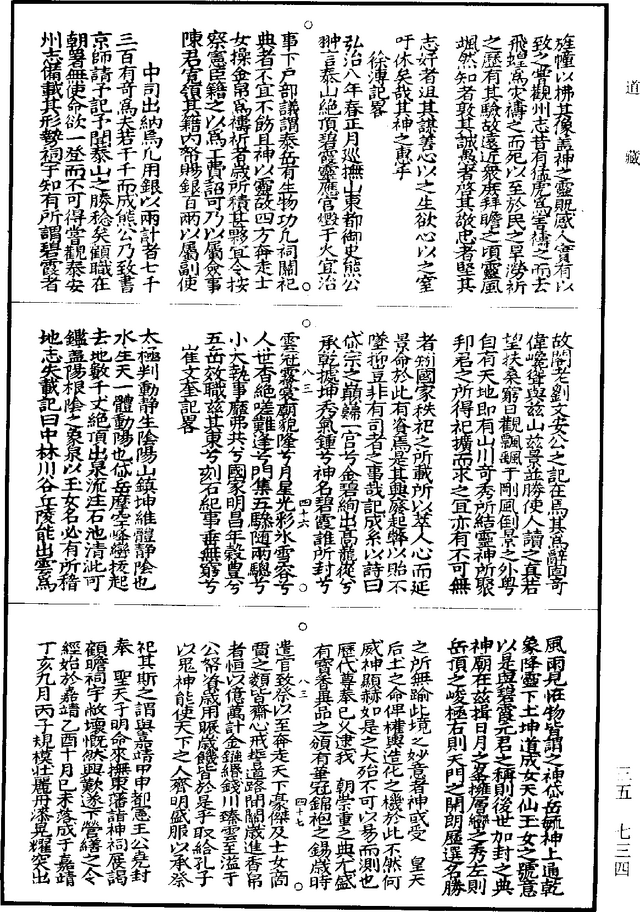 道藏
旌幢以栱其像蓋神之靈貺感人實有以
致之嘗觀州志昔有猛虎爲害禱之而去
飛蝗爲灾禱之而死以至於民之旱澇祈
之歷有其驗故遠近衆庶拜瞻之頃靈風
颯然知者敦其誠愚者啓其敬忠者堅其
志奸者沮其謀善心以之生欲心以之窒
吁休矣哉其神之惠乎
徐溥記畧
弘治八年春正月巡撫山東都御史熊公
翀言泰山絕頂碧霞靈應宮燬于火宜治
事下户部議謂泰岳有生物功凡祠關祀
典者不宜不飭且神以靈故四方奔走士
女操金帛爲禱祈者歲所積其夥宜令按
察憲臣籍之以爲工費詔可乃以屬僉事
陳君寬領其籍内帑賜銀百兩以屬副使
中司出納焉凡用銀以兩計者七千
三百有奇爲夫若干千而成熊公乃致書
京師請予記予聞泰山之勝稔矣顧職在
朝署無使命欲一登而不可得嘗觀泰安
州志備載其形勢祠宇知有所謂碧霞者
故閣老劉文安公之記在焉其爲辭固奇
偉巉聳與兹山兹景並勝使人讀之真若
望扶桑窮日觀飄飄于剛風倒景之外粤
自有天地即有山川奇秀所結靈神所聚
邦君之所得祀擴而求之宜亦有不可無
者矧國家秩祀之所載所以萃人心而延
景命於此有眷焉是其興廢起弊以貽不
墜抑豈非有司者之事哉記成系以詩曰
岱宗之巔歸一宫兮金碧絢出高巃嵸兮
承乾據坤秀氣鍾兮神名碧霞誰所封兮
雲冠霧裳朝貌隆兮月星光彩氷雪容兮
人世杳絕嗟難逢兮門集五驂隨兩驄兮
小大執事靡弗共兮國家明昌年穀豐兮
五岳效職兹其東兮刻石紀事垂無窮兮
崔文奎記畧
太極判動静生陰陽山鎮坤維體静陰也
水生天一體動陽也岱岳摩空峰巒拔起
去地數千丈絕頂出泉流注石池清泚可
鑑蓋陽根陰之象泉以玉女名必有所稽
地志失載記曰中林川谷丘陵能出雲爲
風雨見恠物皆謂之神岱岳毓神上通乾
象降靈下土坤道成女天仙玉女之號意
以是與碧霞元君之稱則後世加封之典
神廟在兹揖日月之峯擁層巒之秀左則
岳頂之峻極右則天門之開朗歷選名勝
之所無踰此境之妙意者神或受　皇天
后土之命俾權輿造化之機於此不然何
威神顯赫如是之大殆不可以易而測也
歷代尊奉已久逮我　朝崇重之典尤盛
有寶香異品之頒有華冠錦袍之錫歲時
遣官致祭以至奔走天下豪傑及士女商
賈之類皆齋心戒誓道路開闢歲進香帛
者恒以億萬計金鏹繦錢川臻雲至溢于
公帑資歲用賑歲饑皆於是乎取給孔子
以鬼神能使天下之人齊明盛服以承祭
祀其斯之謂與嘉靖甲申都憲王公堯封
奉　聖天子明命來撫東藩詣神祠展謁
顧瞻祠宇敝壞慨然興歎遂下營繕之令
經始於嘉靖乙酉十月己未落成于嘉靖
丁亥九月丙子規模壯麗丹漆晃耀突出
八三　四十六
八三　四十七
三五　七三四